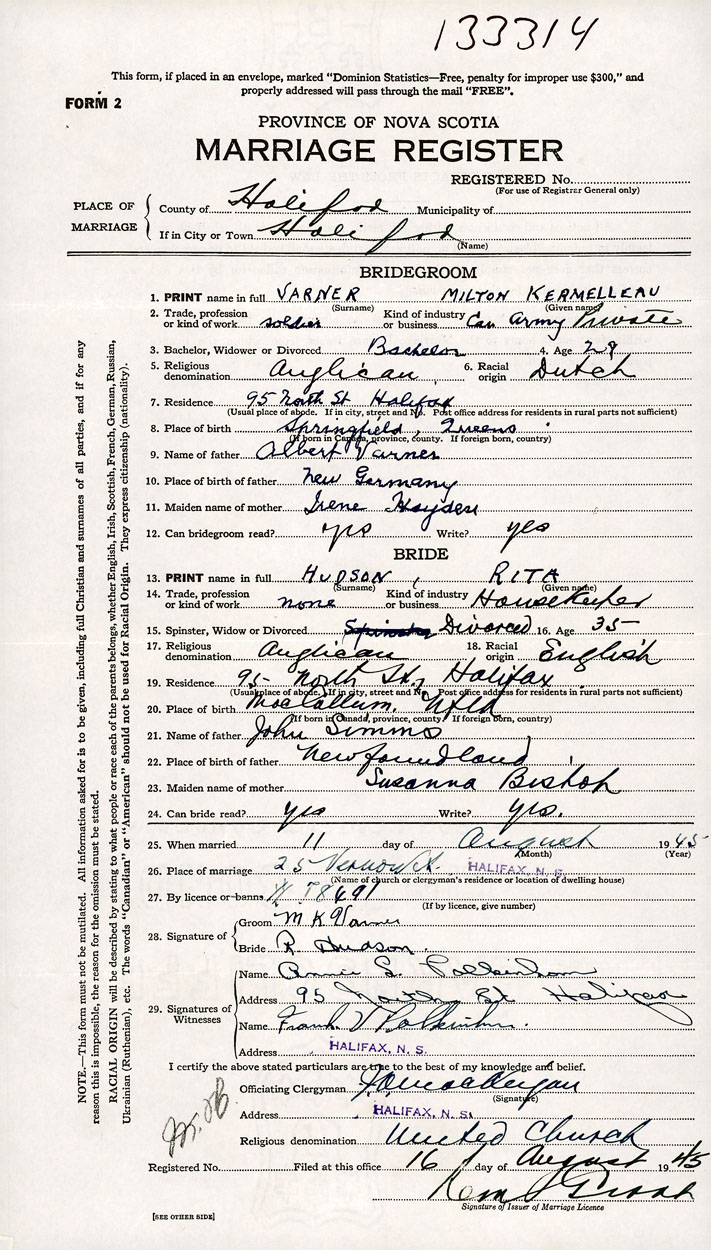 133314
This form, if placed in an envelope, marked "Dominion Statistics—Free, penalty for improper use $300," and
properly addressed will pass through the mail "FREE".
FORM 2
PROVINCE OF NOVA SCOTIA
MARRIAGE REGISTER
REGISTERED No.
(For use of Registrar General only)
PLACE OF MARRIAGE
County of Halifax Municipality of
If in City or Town Halifax
(Name)
BRIDEGROOM
1. PRINT name in full VARNER MILTON KERMELLEAU
(Surname) (Given name)
2. Trade, profession or kind of work soldier Kind of industry or business Can Army Private
3. Bachelor, Widower or Divorced Bachelor 4. Age 29
5. Religious denomination Anglican 6. Racial origin Dutch
7. Residence 95 North St Halifax
(Usual place of abode. If in city, street and No. Post office address for residents in rural parts not sufficient)
8. Place of birth Springfield, Queens
(If born in Canada, province, county. If foreign born, country)
9. Name of father Albert Varner
10. Place of birth of father New Germany
11. Maiden name of mother Irene Hayden
12. Can bridegroom read? yes Write? yes
BRIDE
13. PRINT name in full HUDSON, RITA
(Surname) (Given name)
14. Trade, profession or kind of work none Kind of industry or business Housekeeper
15. Spinster, Widow or Divorced Spinster Divorced 16. Age 35
17. Religious denomination Anglican 18. Racial origin English
19. Residence 95 North St., Halifax
(Usual place of abode. If in city, street and No. Post office address for residents in rural parts not sufficient)
20. Place of birth MacCallum. Nfld
(If born in Canada, province, county If foreign born, country)
21. Name of father John Simms
22. Place of birth of father Newfoundland
23. Maiden name of mother Susanna Bishop
24. Can bride read? yes Write? yes.
25. When married 11 day of August 1945
(Month) (Year)
26. Place of marriage 25 Vernon St. HALIFAX, N. S.
(Name of church or clergyman's residence or location of dwelling house)
27. By licence or banns
(If by licence, give number)
28. Signature of
Groom M K Varner
Bride R. Hudson.
29. Signatures of Witnesses
Name Annie
Address 95 North St Halifax
Name Frank V
Address HALIFAX, N. S.
I certify the above stated particulars are true to the best of my knowledge and belief.
Officiating Clergyman
(Signature)
Address HALIFAX, N. S.
Religious denomination United Church
Registered No. Filed at this office 16 day of August 1945
Signature of Issuer of Marriage Licence
[SEE OTHER SIDE]
NOTE.—This form must not be mutilated. All information asked for is to be given, including full Christian and surnames of all parties, and if for any
reason this is impossible, the reason for the omission must be stated.
RACIAL ORIGIN will be described by stating to what people or race each of the parents belongs, whether English, Irish, Scottish, French, German, Russian,
Ukrainian (Ruthenian), etc. The words "Canadian" or "American" should not be used for Racial Origin. They express citizenship (nationality).